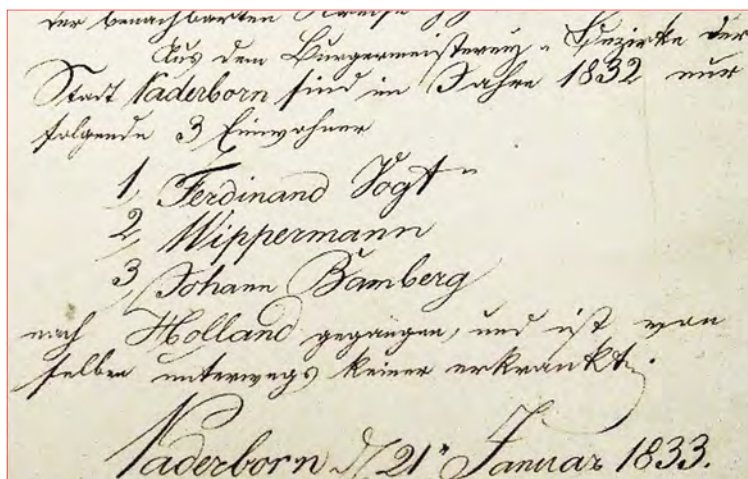 der benachbarten Kreise
Aus dem Burgermeisterey-Bezirke der
Stadt Paderborn sind im Jahre 1832 nur
folgende 3 Einwohner
1, Ferdinand Vogt
2, Wippermann
3, Johann Bamberg
nach Holland gegangen, und ist von
selben unterwegs keiner erkrankt.
Paderborn d 21 Januar 1833.